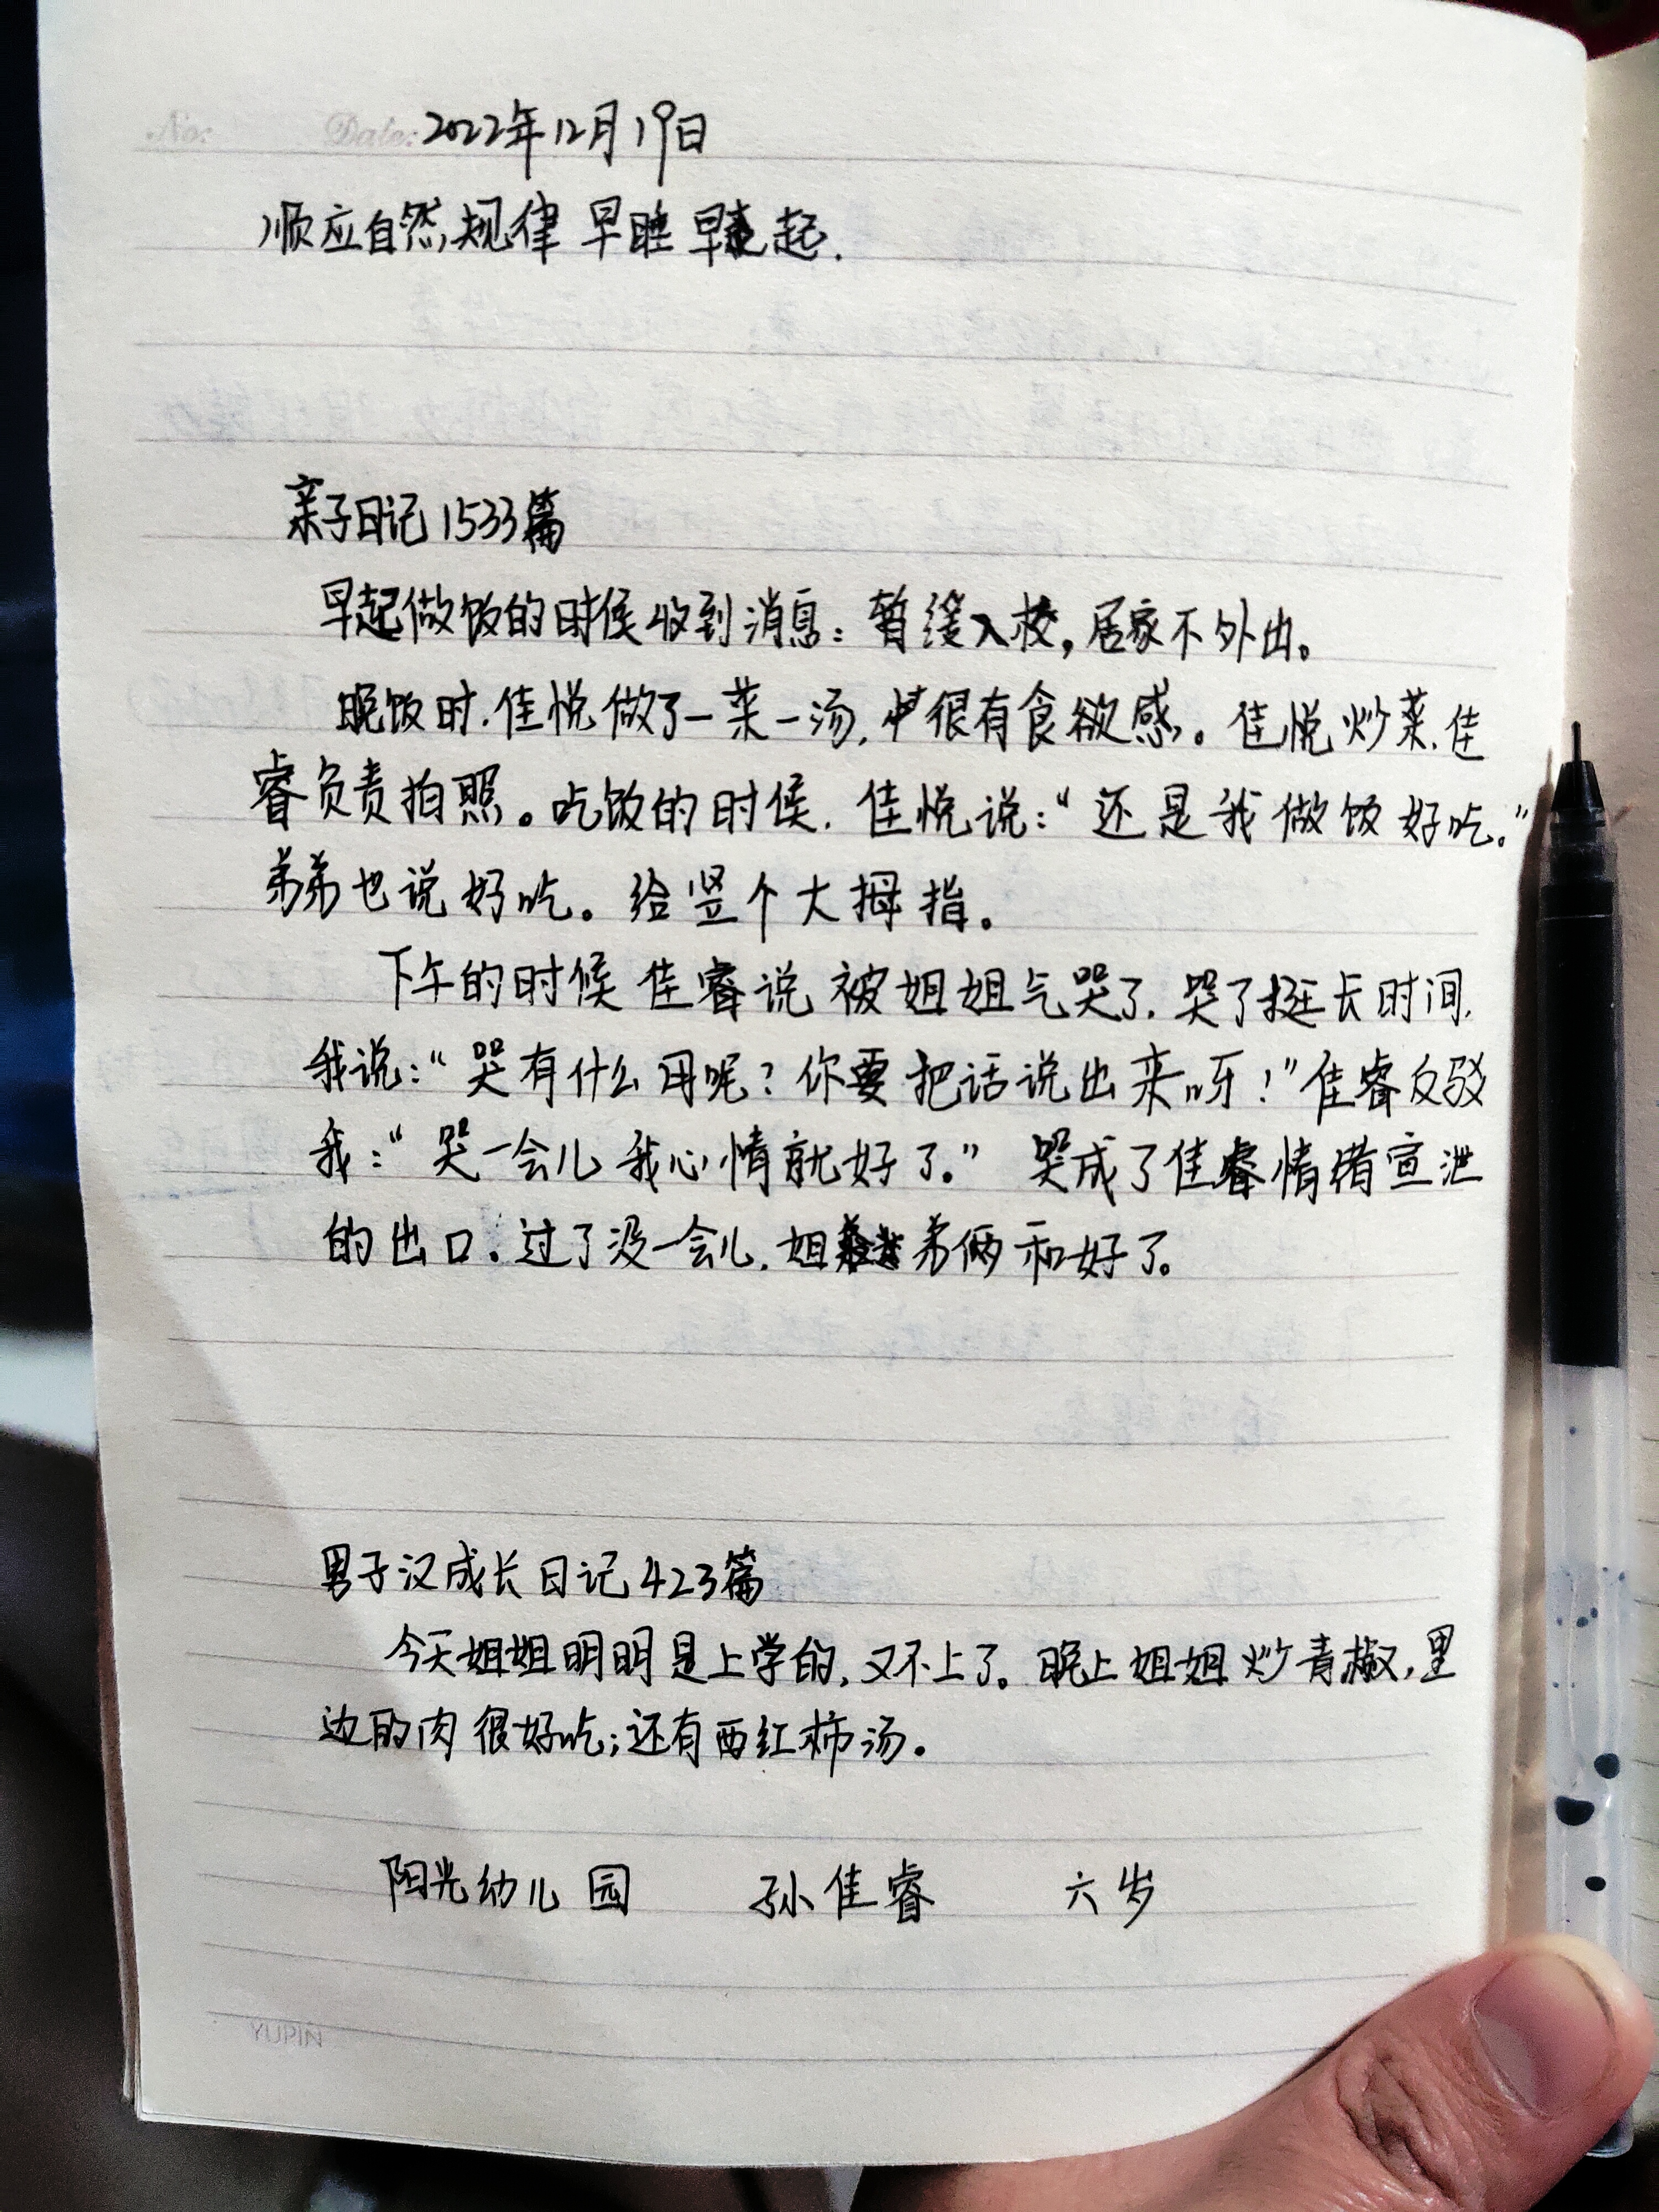 No: Date: 2022年12月19日
顺应自然规律 早睡早起.
亲子日记1533篇
早起做饭的时候收到消息：暂缓入校，居家不外出。
晚饭时.佳悦做了一菜一汤,很有食欲感。佳悦炒菜.佳
睿负责拍照。吃饭的时候.佳悦说：“还是我做饭好吃.”
弟弟也说好吃。给竖个大拇指。
下午的时候佳睿说被姐姐气哭了.哭了挺长时间.
我说：“哭有什么用呢？你要把话说出来呀！”佳睿反驳
我：“哭一会儿我心情就好了.” 哭成了佳睿情绪宣泄
的出口.过了没一会儿.姐弟俩和好了。
男子汉成长日记423篇
今天姐姐明明是上学的,又不上了。晚上姐姐炒青椒,里
边的肉很好吃;还有西红柿汤。
阳光幼儿园 孙佳睿 六岁
YUPIN